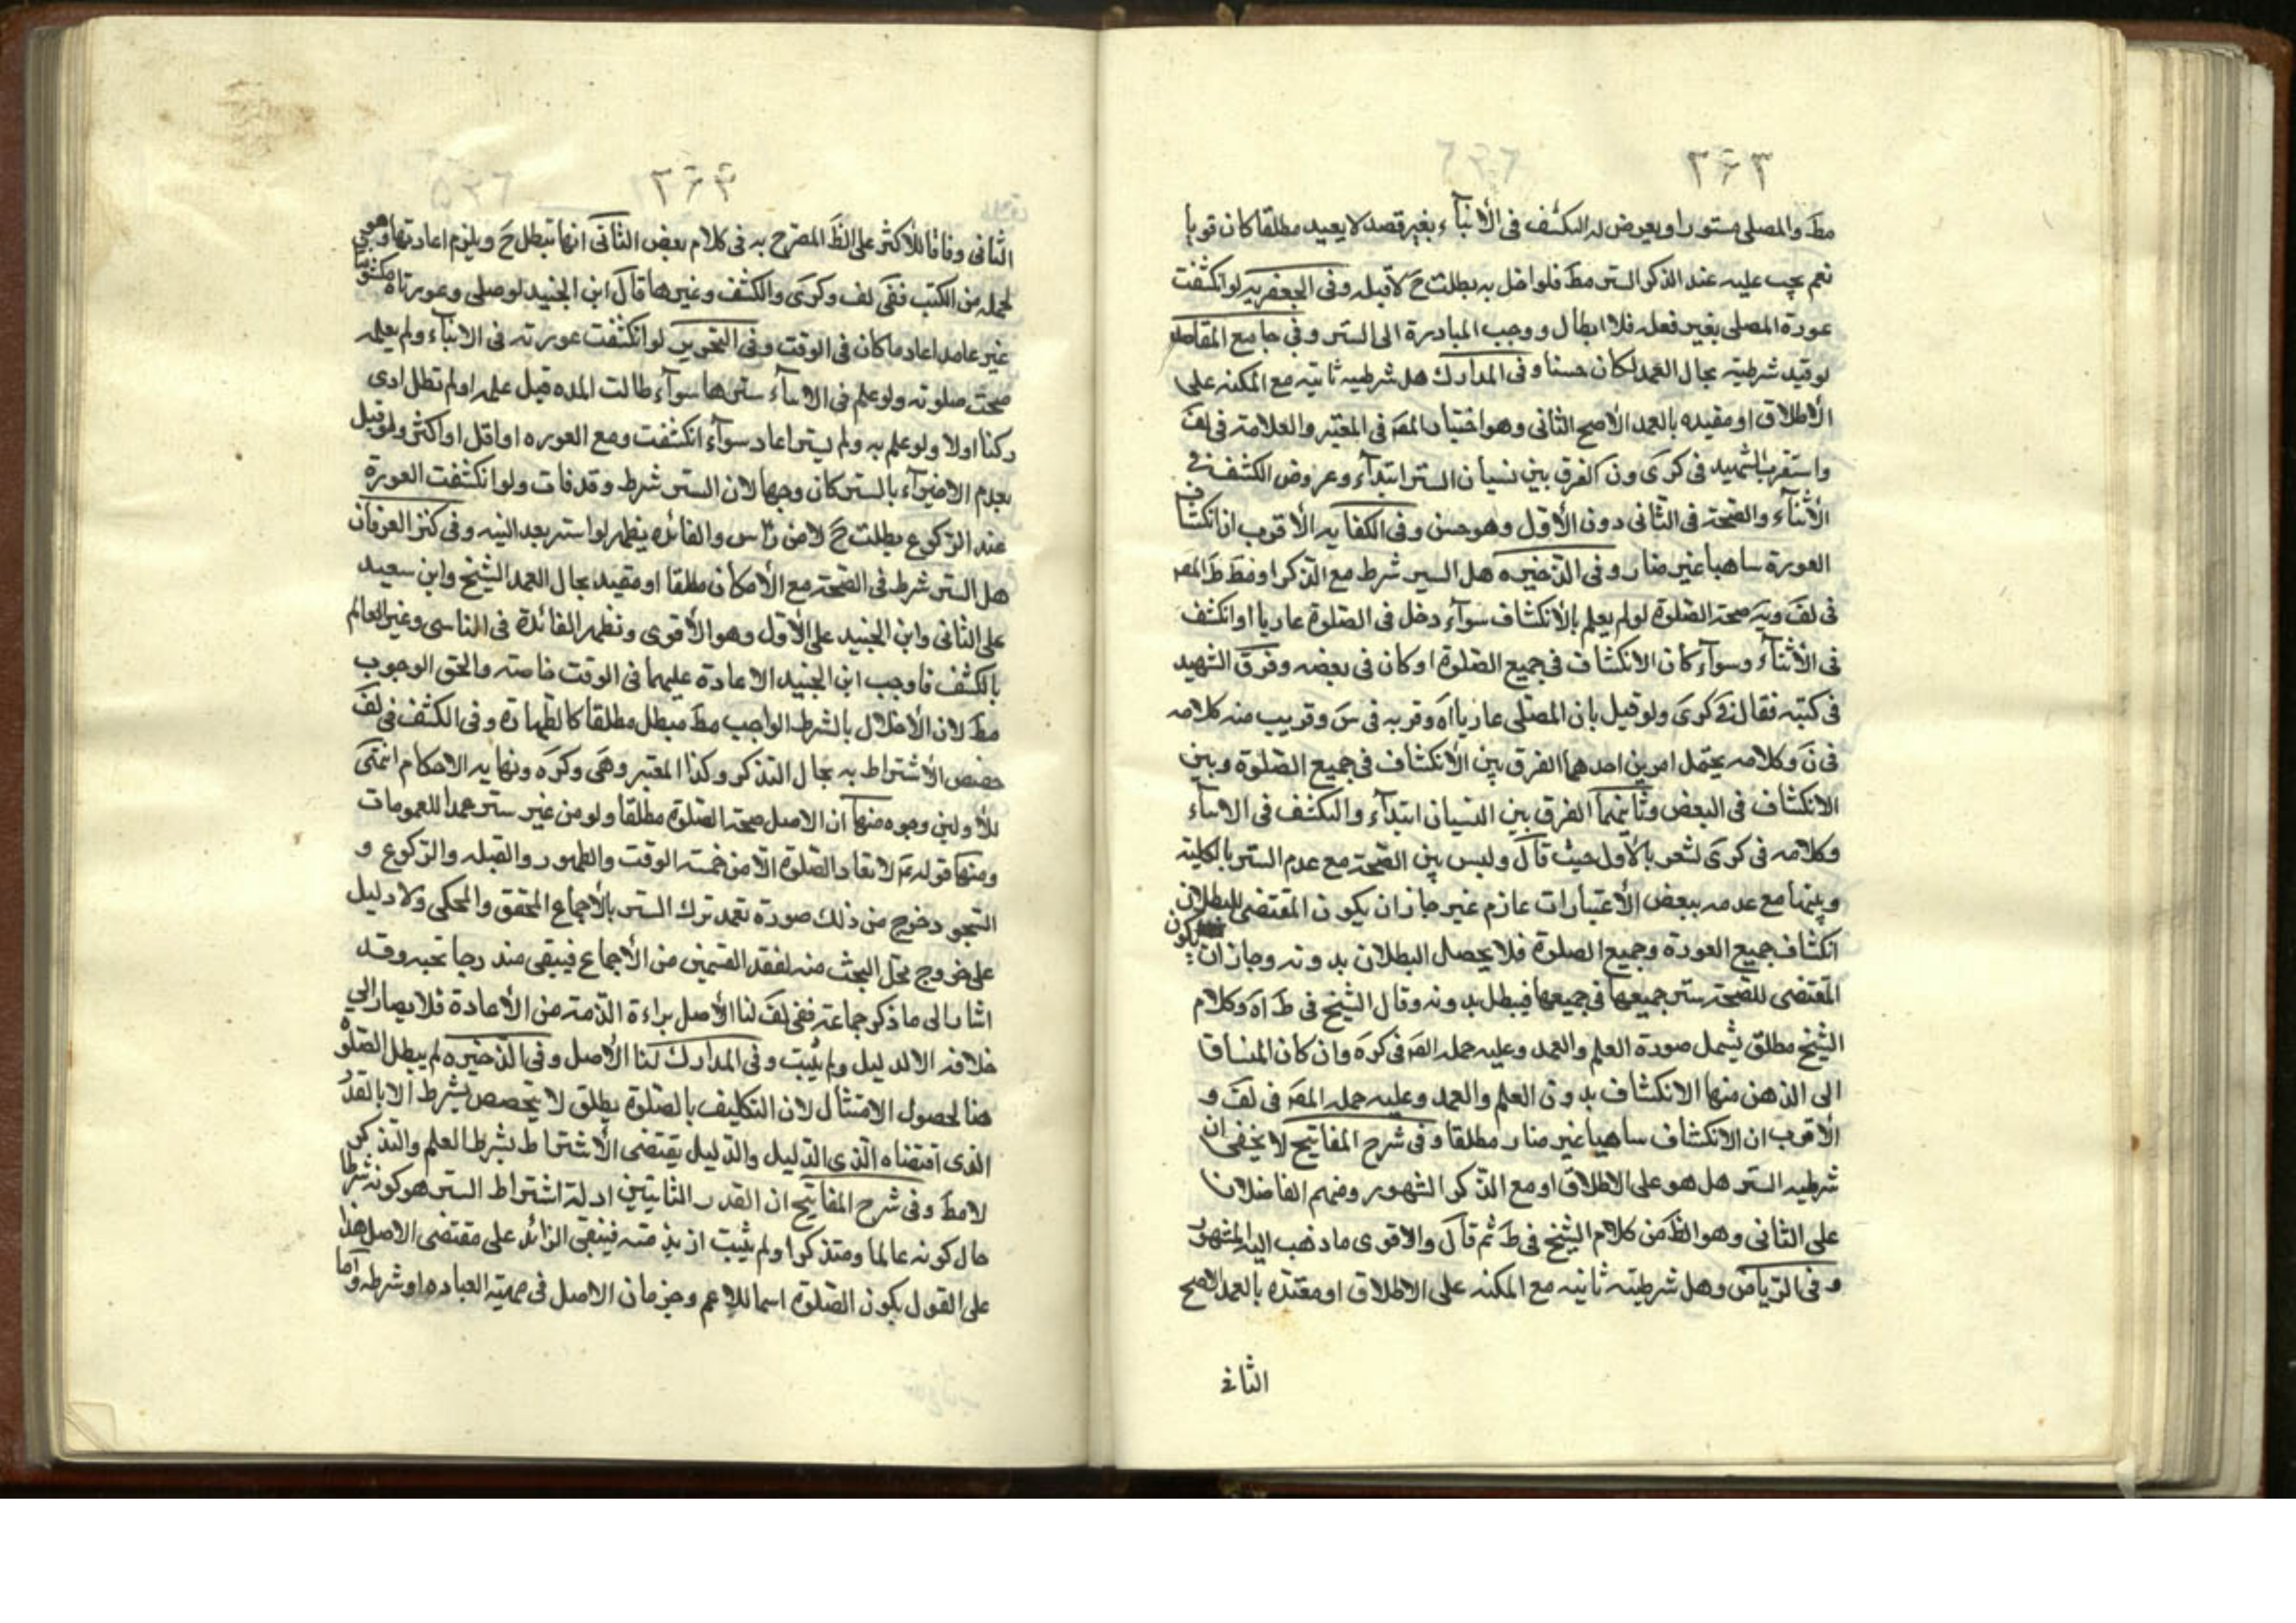 ٢۶٣
مط والمصلى مستورا ويعرض له التكشف فى الأثناء بغير قصد لا يعيد مطلقا كان قويا
نعم يجب عليه عند الذكر الستر مط فلو اخل به بطلت ح لا قبله وفى الجعفريه لو انكشفت
عورة المصلى بغير فعله فلا ابطال ووجب المبادرة الى الستر وفى جامع المقاصد
لو قيد شرطيته بحال العمد لكان حسنا وفى المدارك هل شرطيه ثابتيه مع المكنه على
الأطلاق او مقيده بالعمد الأصح الثانى وهو اختيار المص فى المعتبر والعلامة فى لف
واستقرب الشهيد فى كرى ون الفرق بين نسيان الستر ابتدآء وعروض الكشف فى
الأثنآء والصحة فى الثانى دون الأول وهو حسن وفى الكفايه الأقرب ان انكشاف
العورة ساهيا غير ضار وفى الذخيره هل الستر شرط مع الذكر او مط ظ المص
فى لف ويه صحة الصلوة لو لم يعلم بالأنكشاف سوآء دخل فى الصلوة عاريا او انكشف
فى الأثنآء وسوآء كان الانكشاف فى جميع الصلوة او كان فى بعضه وفرق الشهيد
فى كتبه فقال فى كرى ولو قيل بان المصلى عاريا اه وقربه فى س وقريب منه كلامه
فى ن وكلامه يحتمل امرين احدهما الفرق بين الأنكشاف فى جميع الصلوة وبين
الانكشاف فى البعض وثانيهما الفرق بين النسيان ابتدآء والتكشف فى الاثناء
وكلامه فى كرى تشعر بالأول حيث قال وليس بين الصحة مع عدم الستر بالكلية
وبينها مع عدمه ببعض الأعتبارات عازم غير جاز ان يكون المقتضى للبطلان
انكشاف جميع العورة وجميع الصلوة فلا يحصل البطلان بدونه وجاز ان يكون
المقتضى للصحة ستر جميعها فى جميعها فيبطل بدونه وقال الشيخ فى ط اه وكلام
الشيخ مطلق يشمل صورة العلم والعمد وعليه حمله المص فى كره وان كان المنساق
الى الذهن منها الانكشاف بدون العلم والعمد وعليه حمله المص فى لف و
الأقرب ان الانكشاف ساهيا غير ضار مطلقا وفى شرح المفاتيح لا يخفى ان
شرطيه الستر هل هو على الاطلاق او مع الذكر الشهور ومنهم الفاضلان
على الثانى وهو الظ من كلام الشيخ فى ط ثم قال والاقوى ما ذهب اليه المشهور
وفى الرياض وهل شرطيته ثابتيه مع المكنه على الاطلاق او مقيده بالعمد الاصح
الثانى
٢۶۴
الثانى وفاقا للأكثر على الظ المصرح به فى كلام بعض الثانى انها تبطل ح ويلزم اعادتها وهو
لجمله من الكتب ففى لف وكرى والكشف وغيرها قال ابن الجنيد لو صلى وعورتاه مكشوفتا
غير عامد اعاد ما كان فى الوقت وفى التحرير لو انكشفت عورته فى الاثناء ولم يعلمه
صحت صلوته ولو علم فى الاثناء سترها سوآء طالت المده قبل علمه او لم تطل ادى
ركنا اولا ولو علم به ولم يستر اعاد سوآء انكشفت ربع العوره او اقل او اكثر ولو قيل
بعدم الاجتزآء بالستر كان وجها لان الستر شرط وقد فات ولو انكشفت العورة
عند الركوع بطلت ح لا من راس والفائده يظهر لو استتر بعد النيه وفى كنز العرفان
هل الستر شرط فى الصحة مع الأمكان مطلقا او مقيد بحال العمد الشيخ وابن سعيد
على الثانى وابن الجنيد على الأول وهو الأقوى وتظهر الفائدة فى الناسى وغير العالم
بالكشف فاوجب ابن الجنيد الاعادة عليهما فى الوقت خاصته والحق الوجوب
مط لان الأخلال بالشرط الواجب مط مبطل مطلقا كالطهارة وفى الكشف فى لف
خصص الأشتراط به بحال التذكر وكذا المعتبر وهى وكره ونهايه الاحكام انتهى
للأولين وجوه منها ان الاصل صحة الصلوة مطلقا ولو من غير ستر عمدا للعمومات
ومنها قوله ع لا تعاد الصلوة الا من خمسة الوقت والطهور والقبله والركوع و
السجود خرج من ذلك صورة تعمد ترك الستر بالأجماع المحقق والمحكى ولا دليل
على خروج محل البحث منه لفقد القسمين من الأجماع فيبقى مندرجا تحته وقد
اشار الى ما ذكر جماعة ففى لف لنا الأصل براءة الذمة من الأعادة فلا يصار الى
خلافه الا لدليل ولم يثبت وفى المدارك لنا الأصل وفى الذخيره لم يبطل الصلوة
هنا لحصول الامتثال لان التكليف بالصلوة مطلق لا يتخصص بشرط الا بالقدر
الذى اقتضاه الذى الدليل والدليل يقتضى الأشتراط بشرط العلم والتذكر
لا مط وفى شرح المفاتيح ان القدر الثابت من ادلة اشتراط الستر هو كونه شرطا
حال كونه عالما ومتذكرا ولم يثبت ازيد منه فينبقى الزائد على مقتضى الاصل هذا
على القول بكون الصلوة اسما للاعم وجزمان الاصل فى مهية العباده او شرطه واما